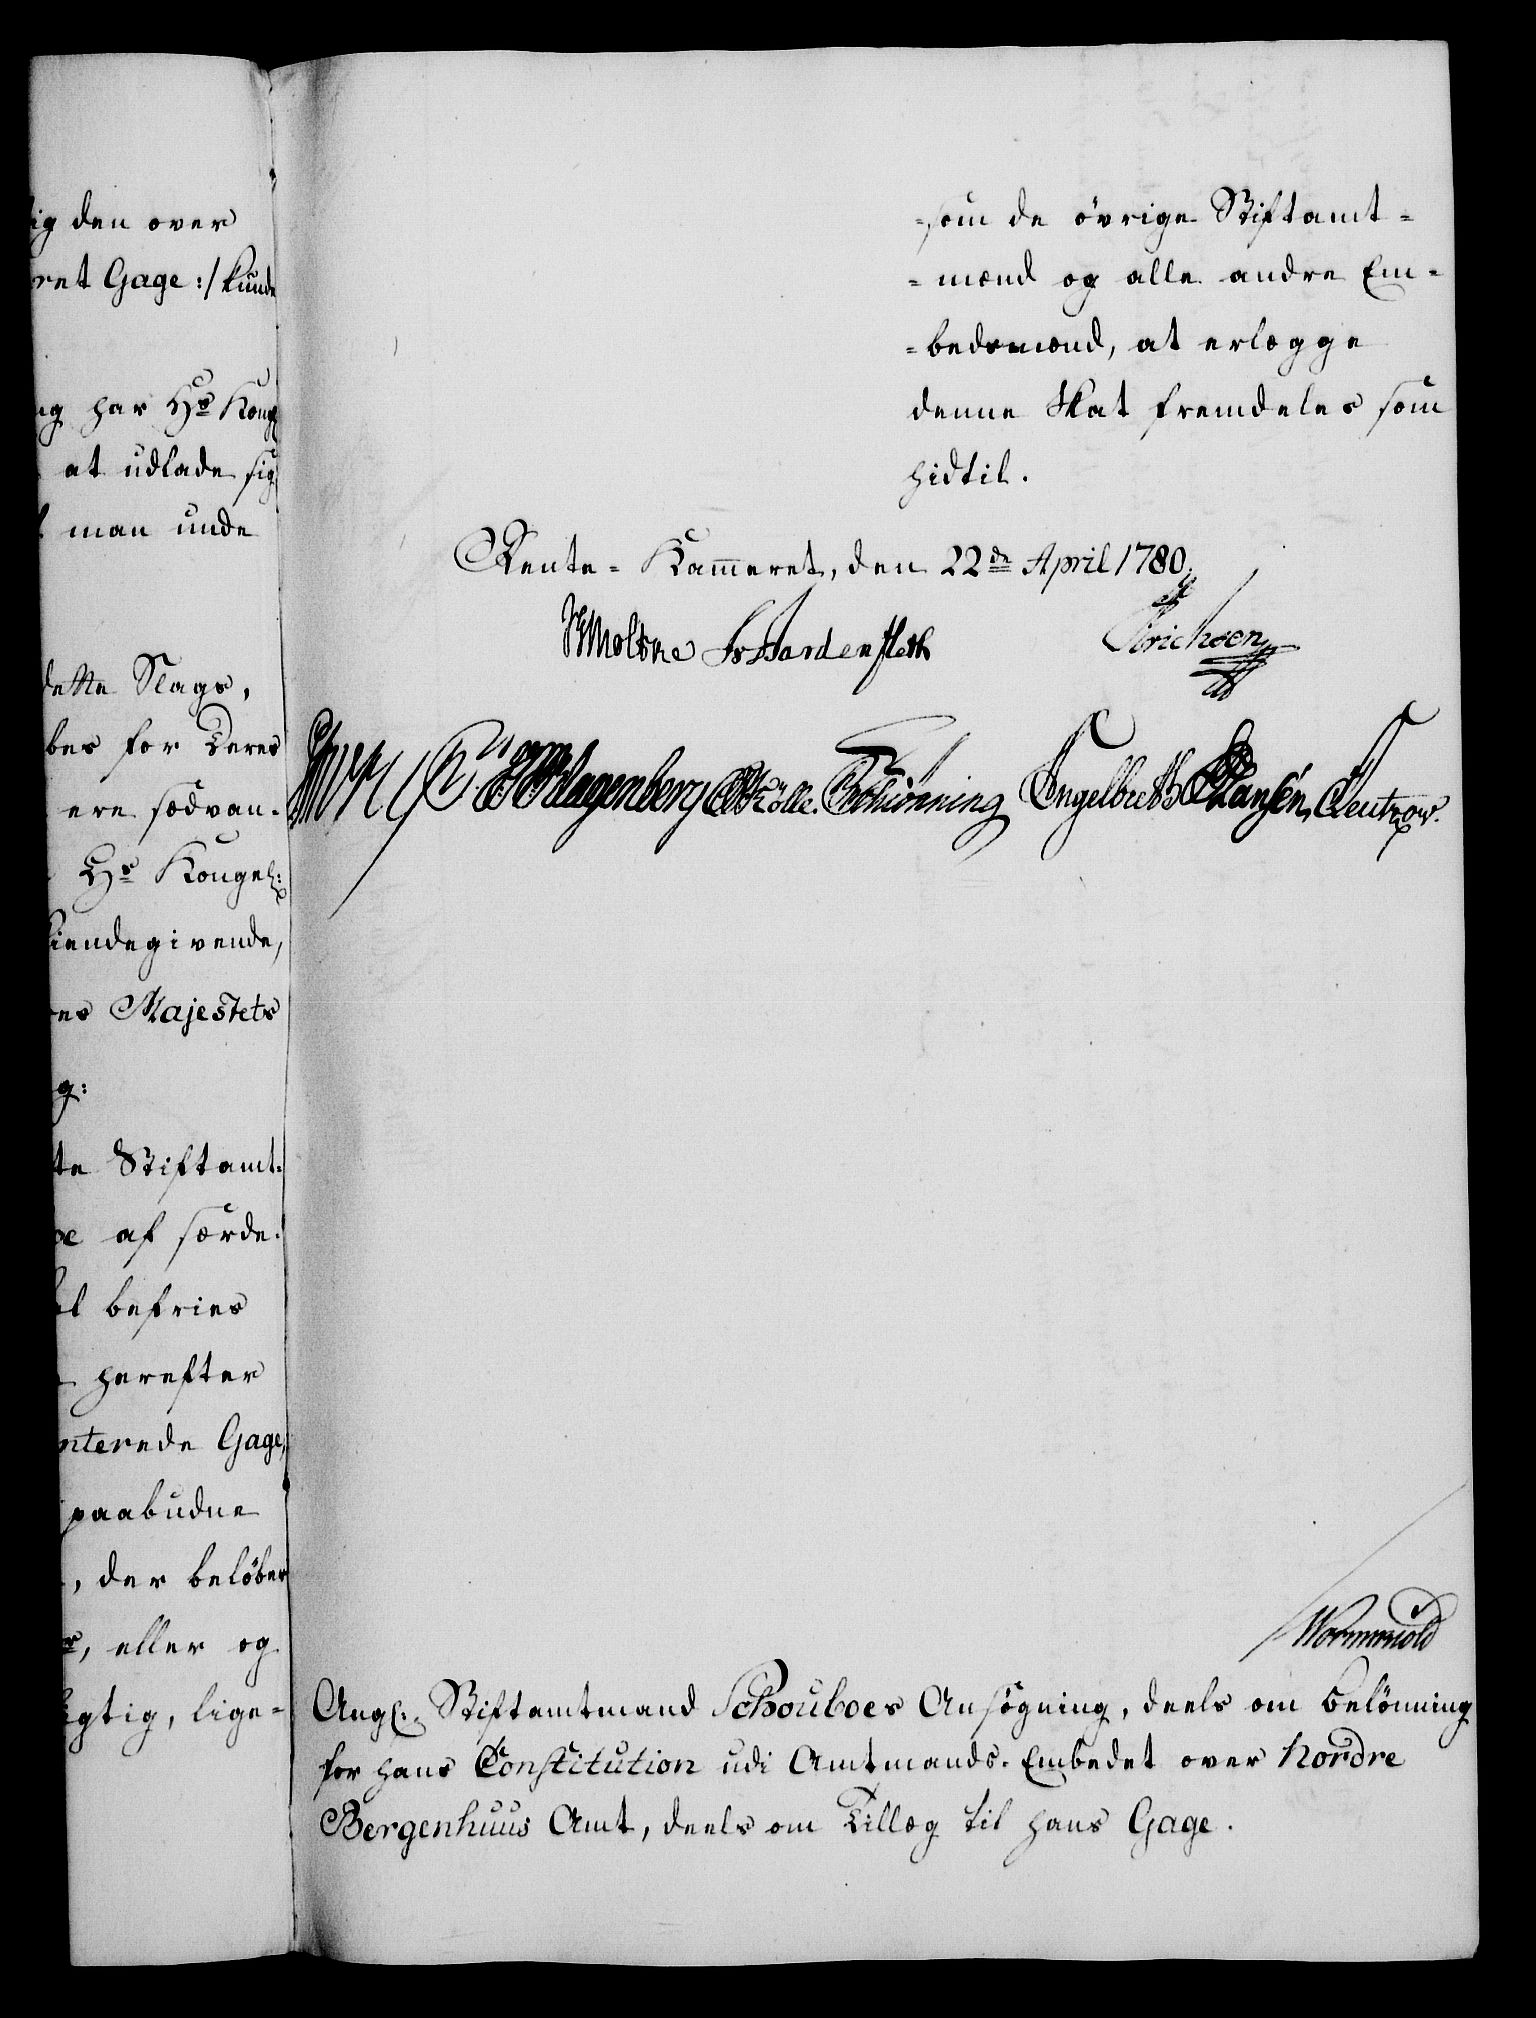 ig den over
ret Gage :/ kunde
ng har Hs Kongl
at udlade sig
man unde
dette Slags,
bes for Deres
ere sædvan-
Hs Kongel:
kiendegivende,
es Majestets
g:
te Stiftamt-
oe af særde-
el befries
herefter
nterede Gage,
paabudne
, der beløber
, eller og
igtig, lige-
-som de övrige Stiftamt-
-mænd og alle andre Em-
-bedsmænd, at erlægge
denne Skat fremdeles som
hidtil.
Rente-Kammeret, den 22de April 1780.
Moltke Hardenfleth Erichsen
Klagenberg Schiönning Engelbreth Hansen Leutzow.
Wormskiold
Angl: Stiftamtmand Schouboes Ansøgning, deels om Belönning
for hans Constitution udi Amtmands-Embedet over Nordre
Bergenhuus Amt, deels om Tillæg til hans Gage.